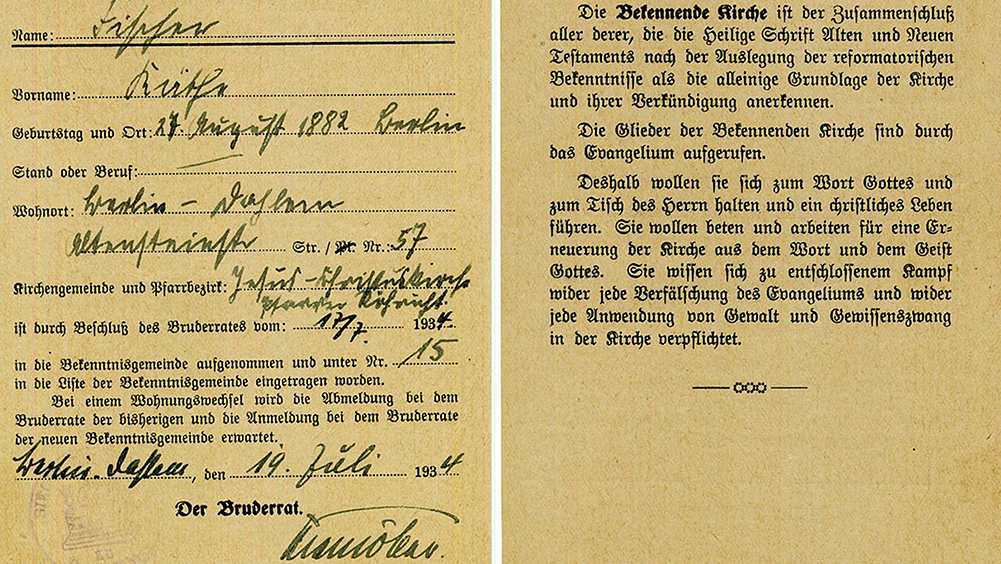 Name: Fischer
Vorname: Käthe
Geburtstag und Ort: 27 August 1882 Berlin
Stand oder Beruf: —
Wohnort: Berlin – Dahlem
Altensteinstr Str. / Pl. Nr.: 57
Kirchengemeinde und Pfarrbezirk: Jesus-Christuskirche
Pfarrer Röhricht
ist durch Beschluß des Bruderrates vom: 17/7. 1934
in die Bekenntnisgemeinde aufgenommen und unter Nr. 15
in die Liste der Bekenntnisgemeinde eingetragen worden.
Bei einem Wohnungswechsel wird die Abmeldung bei dem
Bruderrate der bisherigen und die Anmeldung bei dem Bruderrate
der neuen Bekenntnisgemeinde erwartet.
Berlin-Dahlem, den 19. Juli 1934
Der Bruderrat.
Die Bekennende Kirche ist der Zusammenschluß
aller derer, die die Heilige Schrift Alten und Neuen
Testaments nach der Auslegung der reformatorischen
Bekenntnisse als die alleinige Grundlage der Kirche
und ihrer Verkündigung anerkennen.
Die Glieder der Bekennenden Kirche sind durch
das Evangelium aufgerufen.
Deshalb wollen sie sich zum Wort Gottes und
zum Tisch des Herrn halten und ein christliches Leben
führen. Sie wollen beten und arbeiten für eine Er-
neuerung der Kirche aus dem Wort und dem Geist
Gottes. Sie wissen sich zu entschlossenem Kampf
wider jede Verfälschung des Evangeliums und wider
jede Anwendung von Gewalt und Gewissenszwang
in der Kirche verpflichtet.